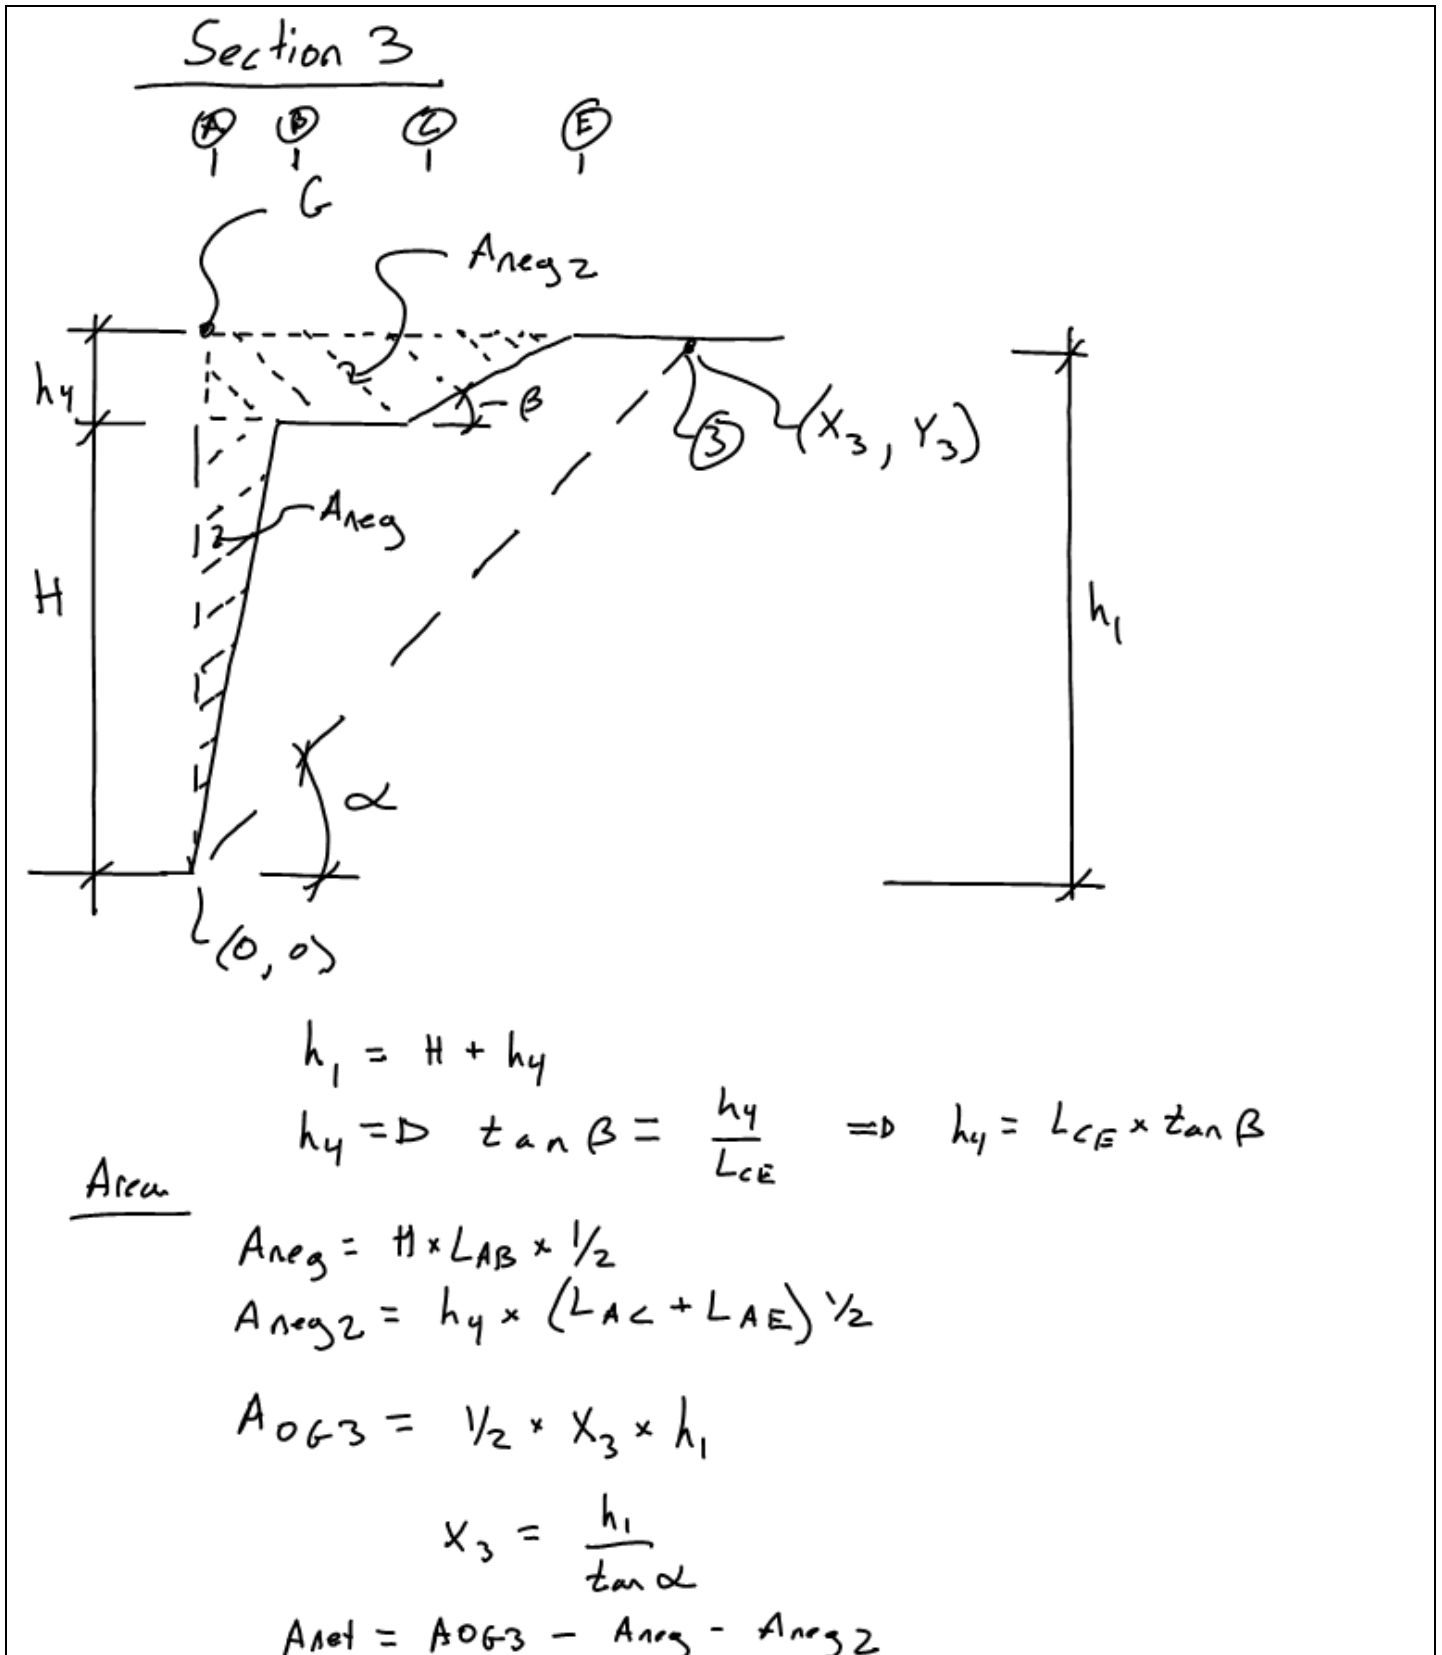 Section 3
A B C E
G
Aneg2
hy
β
3 (X3, Y3)
Aneg
H
h1
α
(0,0)
h1 = H + hy
hy => tan β = hy / LCE => hy = LCE × tan β
Area
Aneg = H × LAB × 1/2
Aneg2 = hy × (LAC + LAE) 1/2
AOG3 = 1/2 × X3 × h1
X3 = h1 / tan α
Anet = AOG3 - Aneg - Aneg2